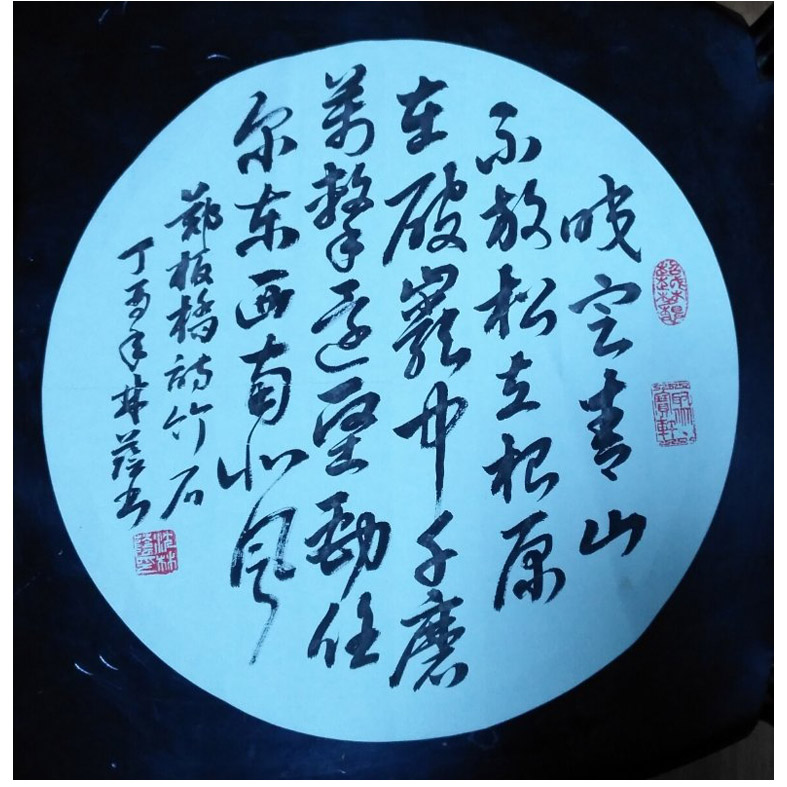 咬定青山
不放松立根原
在破巖中千磨
萬擊还坚劲任
尔东西南北风
鄭板橋詩竹石
丁酉年林蔭书